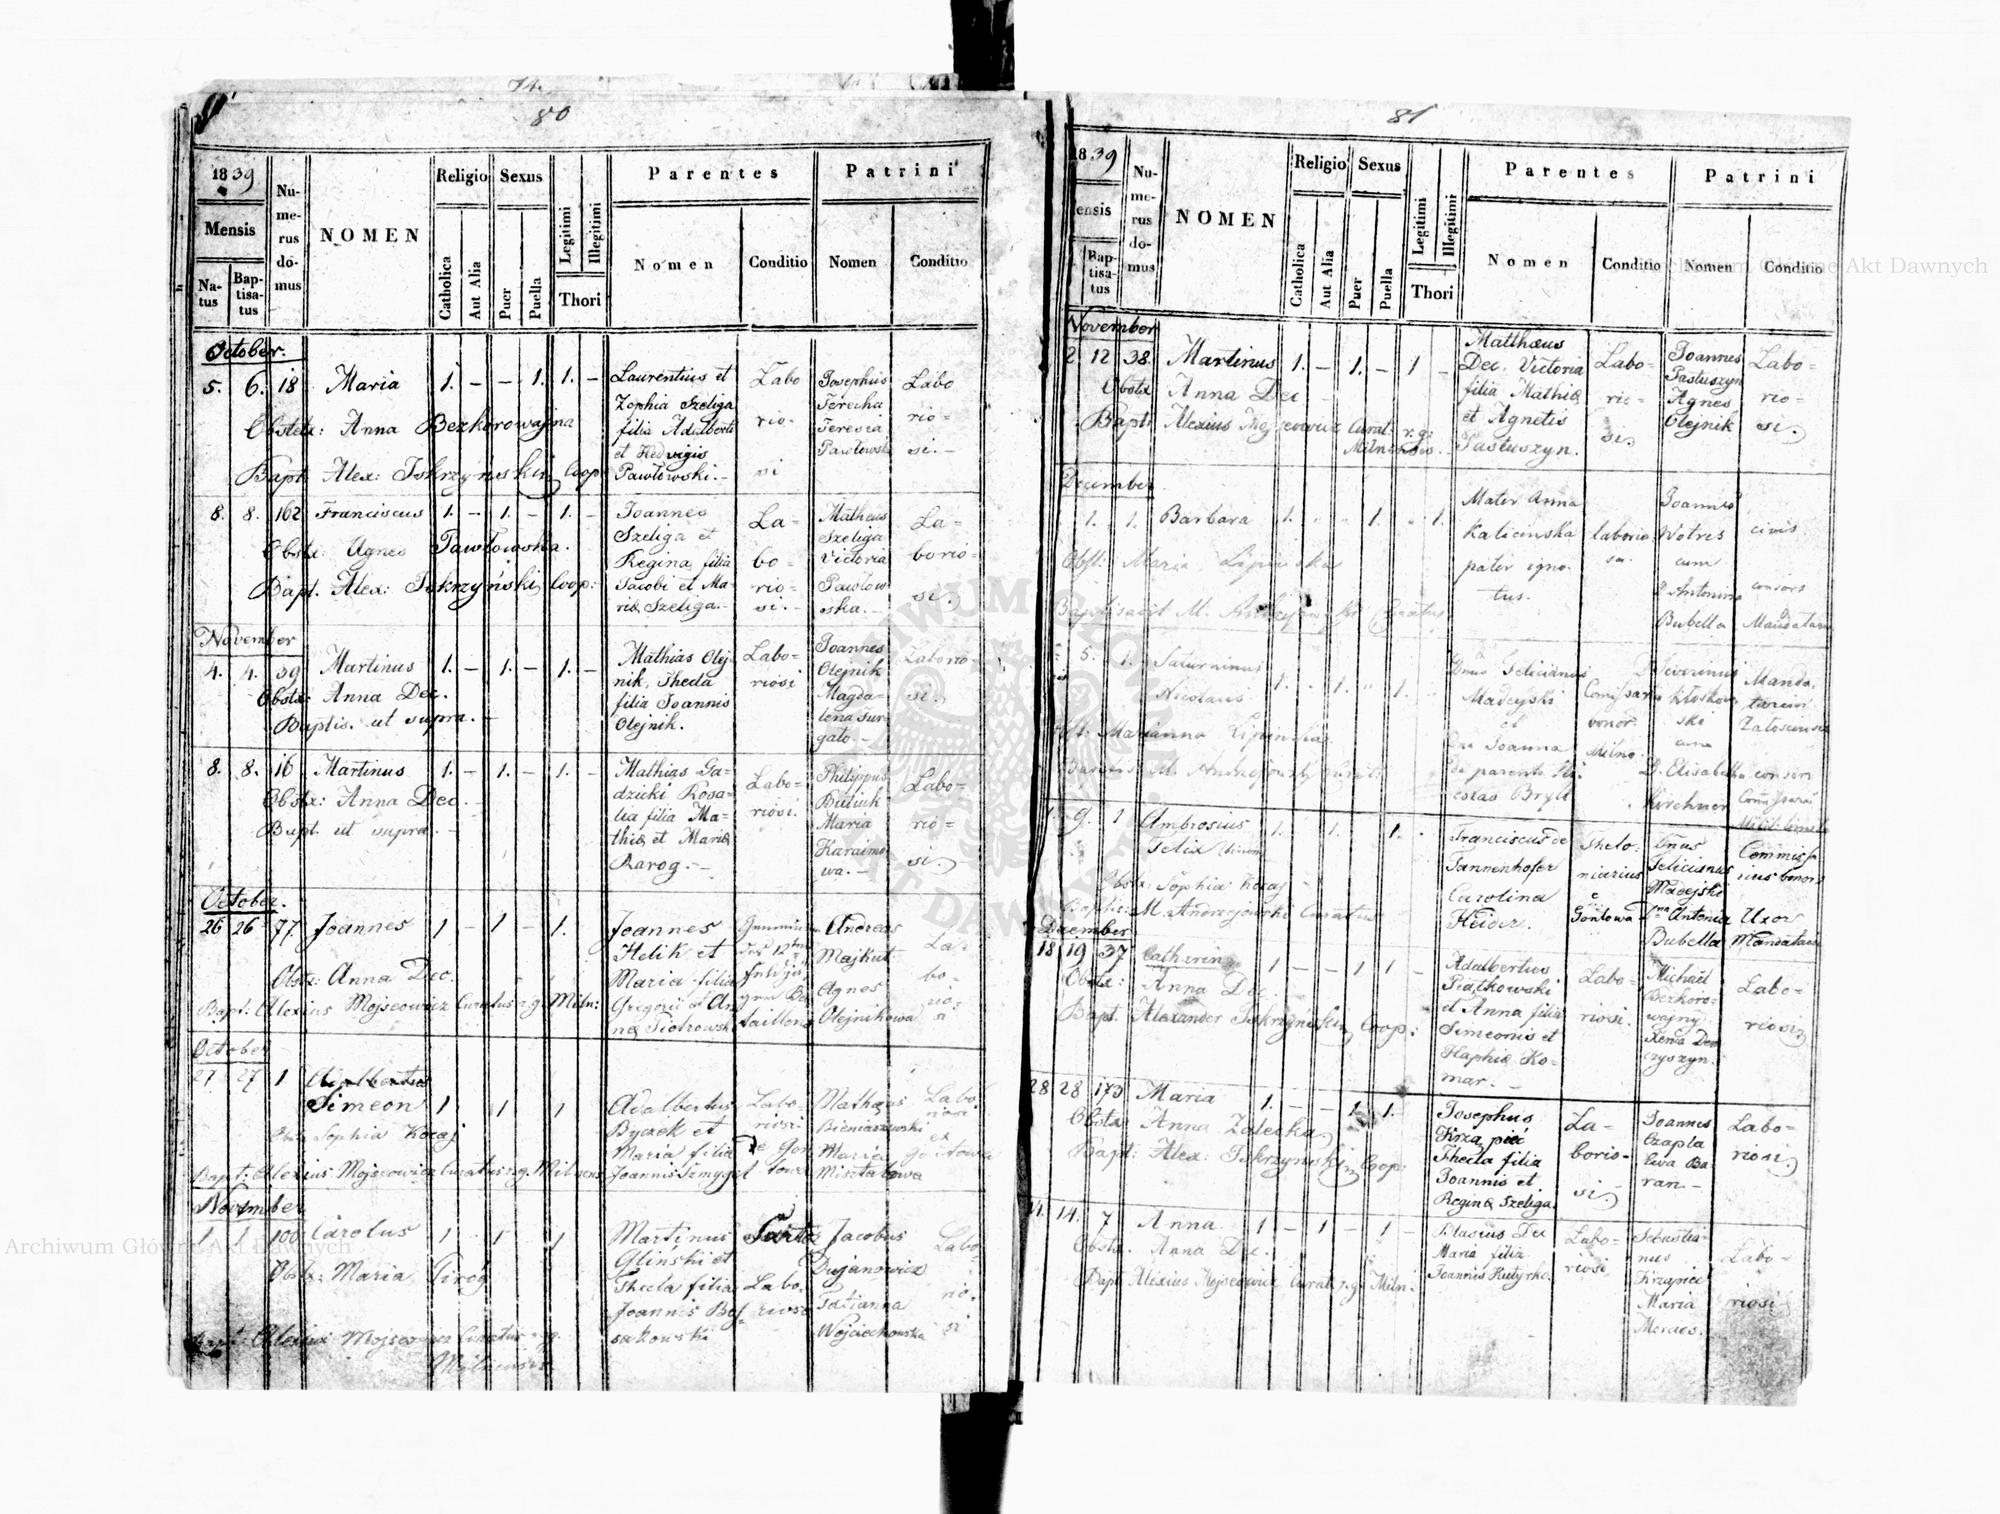 74.
80
1839
Mensis
Na-
tus
Bap-
tisa-
tus
Nu-
me-
rus
do-
mus
NOMEN
Religio
Catholica
Aut Alia
Sexus
Puer
Puella
Legitimi
Illegitimi
Thori
Parentes
Nomen
Conditio
Patrini
Nomen
Conditio
October.
5. 6. 18 Maria 1. – – 1. 1. –
Obstetr: Anna Bezkorowajna
Bapt. Alex: Iskrzyński Coop:
Laurentius et
Zophia Szeliga
filia Adalberti
et Hedvigis
Pawłowski.
Labo
rio-
si
Josephus
Tereska
Teresia
Pawłowski
Labo
rio-
si.
8. 8. 162 Franciscus 1. – 1. – 1. –
Obstr: Agnes Pawłowska.
Bapt. Alex: Iskrzyński Coop:
Joannes
Szeliga et
Regina filia
Jacobi et Ma-
riæ Szeliga.
La-
bo-
rio-
si.
Matheus
Szeliga
Victoria
Pawłow-
ska.
La-
borio-
si.
November
4. 4. 39 Martinus 1. – 1. – 1. –
Obstr: Anna Dec.
Baptis. ut supra.
Mathias Olej-
nik, Thecla
filia Joannis
Olejnik.
Labo-
riosi
Joannes
Olejnik
Magda-
lena Fur-
gato.
Laborio-
si.
8. 8. 16 Martinus 1. – 1. – 1. –
Obstr: Anna Dec.
Bapt. ut supra.
Mathias Ga-
dzicki Rosa-
lia filia Ma-
thiæ et Mariæ
Rarog.
Labo-
riosi.
Philippus
Butnik
Maria
Karaimo-
wa.
Labo-
rio-
si.
October.
26 26 77 Joannes 1 – 1 – 1.
Obstr: Anna Dec.
Bapt: Alexius Mojseowicz Curatus r. g. Miln:
Joannes
Helik et
Maria filia
Gregorii et An-
næ Piotrowski
Andreas
Majkut
Agnes
Olejnikowa
La-
bo-
rio-
si
October
27 27 1 Adalbertus
Simeon 1 1 1
Obstr Sophia Kozaj
Bapt: Alexius Mojseowicz Curatus r. g. Milnens:
Adalbertus
Byczek et
Maria filia
Joannis Szmygel
Labo-
riosi
de Gon
towa
Matheus
Bieniaszewski
Maria
Misztalowa
Labo
riosi
ex
Gontowa
November
1 1 100 Carolus 1 1 1
Obstr: Maria Girog
Bapt: Alexius Mojseowicz Curatus r. g.
Milnensis
Martinus
Glinski et
Thecla filia
Joannis Bos-
sakowski
Sartor
Labo-
riosa
Jacobus
Dujanowicz
Tatianna
Wojciechowska
Labo
rio-
si
81
1839
ensis
Bap-
tisa-
tus
Nu-
me-
rus
do-
mus
NOMEN
Religio
Catholica
Aut Alia
Sexus
Puer
Puella
Legitimi
Illegitimi
Thori
Parentes
Nomen
Conditio
Patrini
Nomen
Conditio
November
2 12 38. Martinus 1. – 1. – 1 –
Obstr Anna Dec –
Bapt: Alexius Mojseowicz Curat: r. g.
Milnensis.
Matthæus
Dec. Victoria
filia Mathiæ
et Agnetis
Pastuszyn.
Labo-
rio-
si.
Joannes
Pastuszyn
Agnes
Olejnik
Labo-
rio-
si.
December
1. 1. Barbara 1. 1. 1.
Obst: Maria Lipinska
Baptisavit M. Andrzejowski Curatus
Mater Anna
Kalicinska
pater igno-
tus.
laborio
sa.
Joannes
Wotres
cum
D Antonina
Bubella
civis
consors
Mandatarii
5. 1. Saturninus
Nicolaus 1. 1. 1.
Obst: Marianna Lipinska.
Baptis: M. Andrzejowski Curat.
Dnus Felicianus
Madeyski
et
Dna Joanna
Commissari
bonor.
Milno.
D Severinus
ski
cum
D. Elisabetha
Kirchner
Manda-
tarius
consors
9. 1 Ambrosius
Felix 1. 1. 1.
Obstr: Sophia Kozaj
Baptis: M. Andrzejowski Curatus
Franciscus de
Tannenhofer
Carolina
Heider.
Thelo-
niarius
e
Gontowa
Dnus
Felicianus
Madejski
Dna Antonia
Bubella
Commissa
rius bonor
Uxor
Mandatarii
December
18 19 37 Catharina 1 – – 1 1 –
Obstr: Anna Dec.
Bapt. Alexander Iskrzyński Coop:
Adalbertus
Piątkowski
et Anna filia
Simeonis et
Haphiæ Ko-
mar.
Labo-
riosi.
Michael
Bezkoro-
wajny
Xenia Dem
czyszyn.
Labo-
riosi
28 28 173 Maria 1. – – 1 1.
Obstr Anna Zalecka
Bapt: Alex: Iskrzyński Coop:
Josephus
Krząpiec
Thecla filia
Joannis et
Reginæ Szeliga.
La-
borio-
si
Joannes
Czapla
Ewa Ba-
ran.
Labo-
riosi.
14. 14. 7 Anna. 1 – 1 – 1 –
Obstr. Anna Dec.
Bapt Alexius Mojseowicz Curat. r. g. Miln:
Blasius Dec
Maria filia
Joannis Kutyrko.
Labo-
riosi
Sebastia-
nus
Krząpiec
Maria
Labo-
riosi
Archiwum Główne Akt Dawnych
Archiwum Główne Akt Dawnych
ARCHIWUM GŁÓWNE AKT DAWNYCH